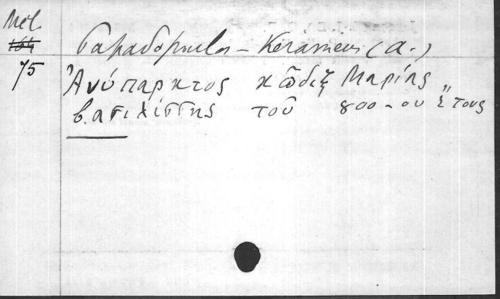 Mél.
164
75
Papadopoulos - Kerameus (A.)
Ἀνύπαρκτος κῶδιξ Μαρίας
βασιλίσσης τοῦ 800-οῦ ἔτους